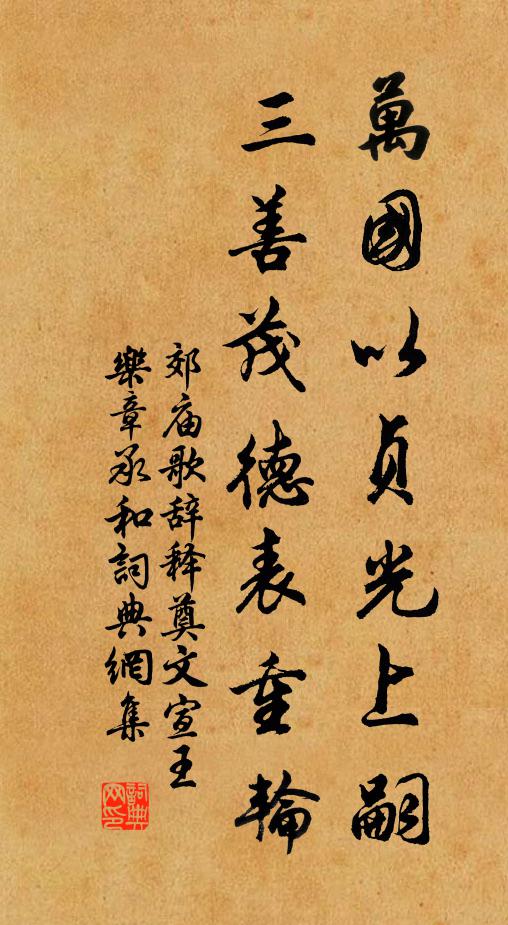 萬國以貞光上嗣
三善茂德表重輪
郊庙歌辞释奠文宣王
樂章承和詞典網集
詞典网印